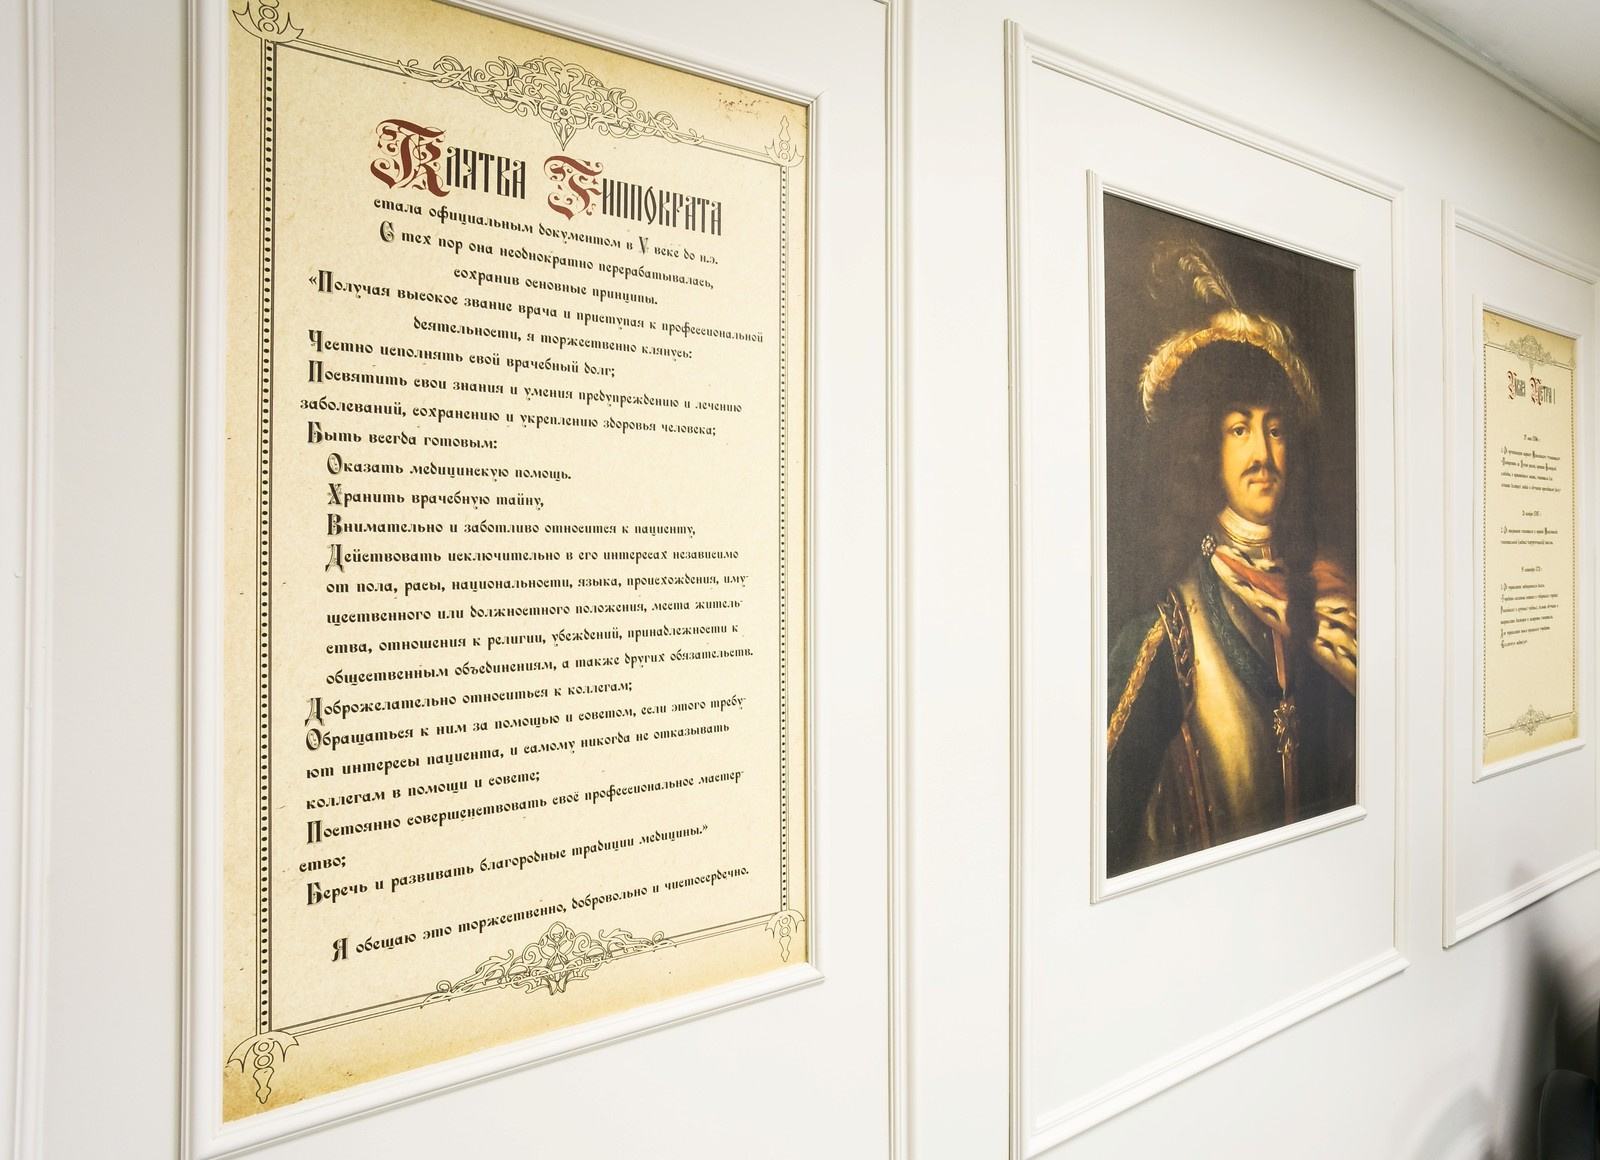 Клятва Гиппократа
стала официальным документом в V веке до н.э.
С тех пор она неоднократно перерабатывалась,
сохранив основные принципы.
«Получая высокое звание врача и приступая к профессиональной
деятельности, я торжественно клянусь:
Честно исполнять свой врачебный долг;
Посвятить свои знания и умения предупреждению и лечению
заболеваний, сохранению и укреплению здоровья человека;
Быть всегда готовым:
Оказать медицинскую помощь.
Хранить врачебную тайну,
Внимательно и заботливо относится к пациенту,
Действовать исключительно в его интересах независимо
от пола, расы, национальности, языка, происхождения, иму-
щественного или должностного положения, места житель-
ства, отношения к религии, убеждений, принадлежности к
общественным объединениям, а также других обязательств.
Доброжелательно относиться к коллегам;
Обращаться к ним за помощью и советом, если этого требу-
ют интересы пациента, и самому никогда не отказывать
коллегам в помощи и совете;
Постоянно совершенствовать своё профессиональное мастер-
ство;
Беречь и развивать благородные традиции медицины.»
Я обещаю это торжественно, добровольно и чистосердечно.
Указ Петра I